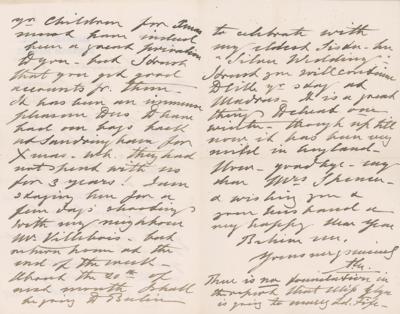 yr. Children for Xmas
must have indeed
been a great privation
to you - but I trust
that you get good
accounts fr. them -
It has been an immense
pleasure to us to have
had our boys back
at Sandringham for
Xmas - wh. they had
not spent with us
for 3 years! I am
staying here for a
few days shooting
with my neighbour
Mr. Villebois - but
return home at the
end of the week -
About the 20th of
next month I shall
be going to Berlin
to celebrate with
my eldest Sister her
"Silver Wedding".
I trust you will continue
to like yr. stay at
Madras. It is a great
thing to be at one
winter - though up till
now it has been very
mild in England.
Now - good-bye - my
dear Mrs.
& wishing you &
your husband a
very happy New Year
Believe me,
Yours very sincerely
There is no foundation in
the report that Miss
is going to marry Ld.